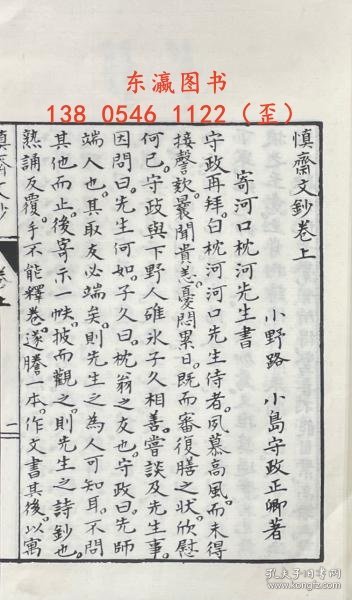 东瀛图书
138 0546 1122（歪）
慎齋文鈔卷上
小野路 小島守政正卿著
寄河口枕河先生書
守政再拜白枕河河口先生侍者夙慕高風而未得
接謦欬曩聞貴恙憂悶累日既而審復膳之狀欣慰
何已守政與下野人碓氷子久相善嘗談及先生事
因問曰先生何如子久曰枕翁之友也守政曰先師
端人也其取友必端矣則先生之為人可知耳不問
其他而止後寄示一帙披而觀之則先生之詩鈔也
熟誦反覆手不能釋卷遂謄一本作文書其後以寓
慎齋文鈔
卷上
一
孔夫子旧书网